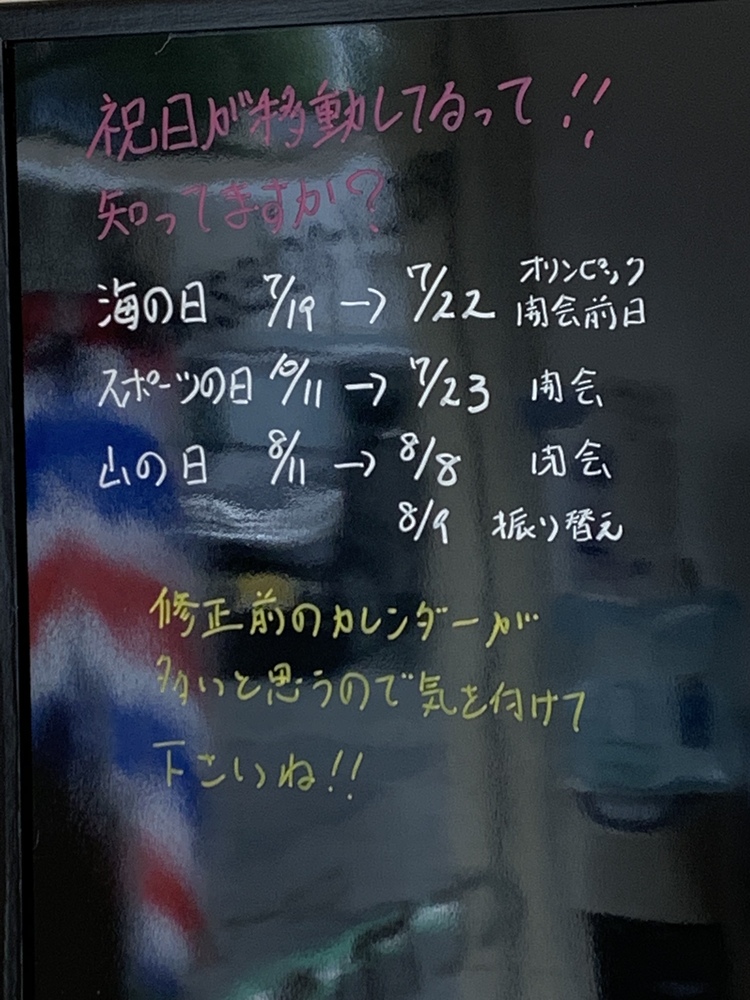 祝日が移動してるって!!
知ってますか?
海の日 7/19 → 7/22 オリンピック開会前日
スポーツの日 10/11 → 7/23 開会
山の日 8/11 → 8/8 閉会
8/9 振り替え
修正前のカレンダーが
多いと思うので気を付けて
下さいね!!